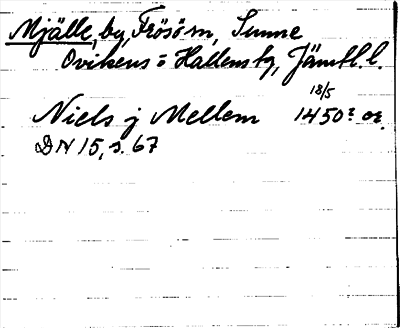 Mjälle, by, Frösö sn, Sunne
Ovikens o Hallens tg, Jämtl. l.
Niels j Mellem 18/5 1450? or.
DN 15, s. 67